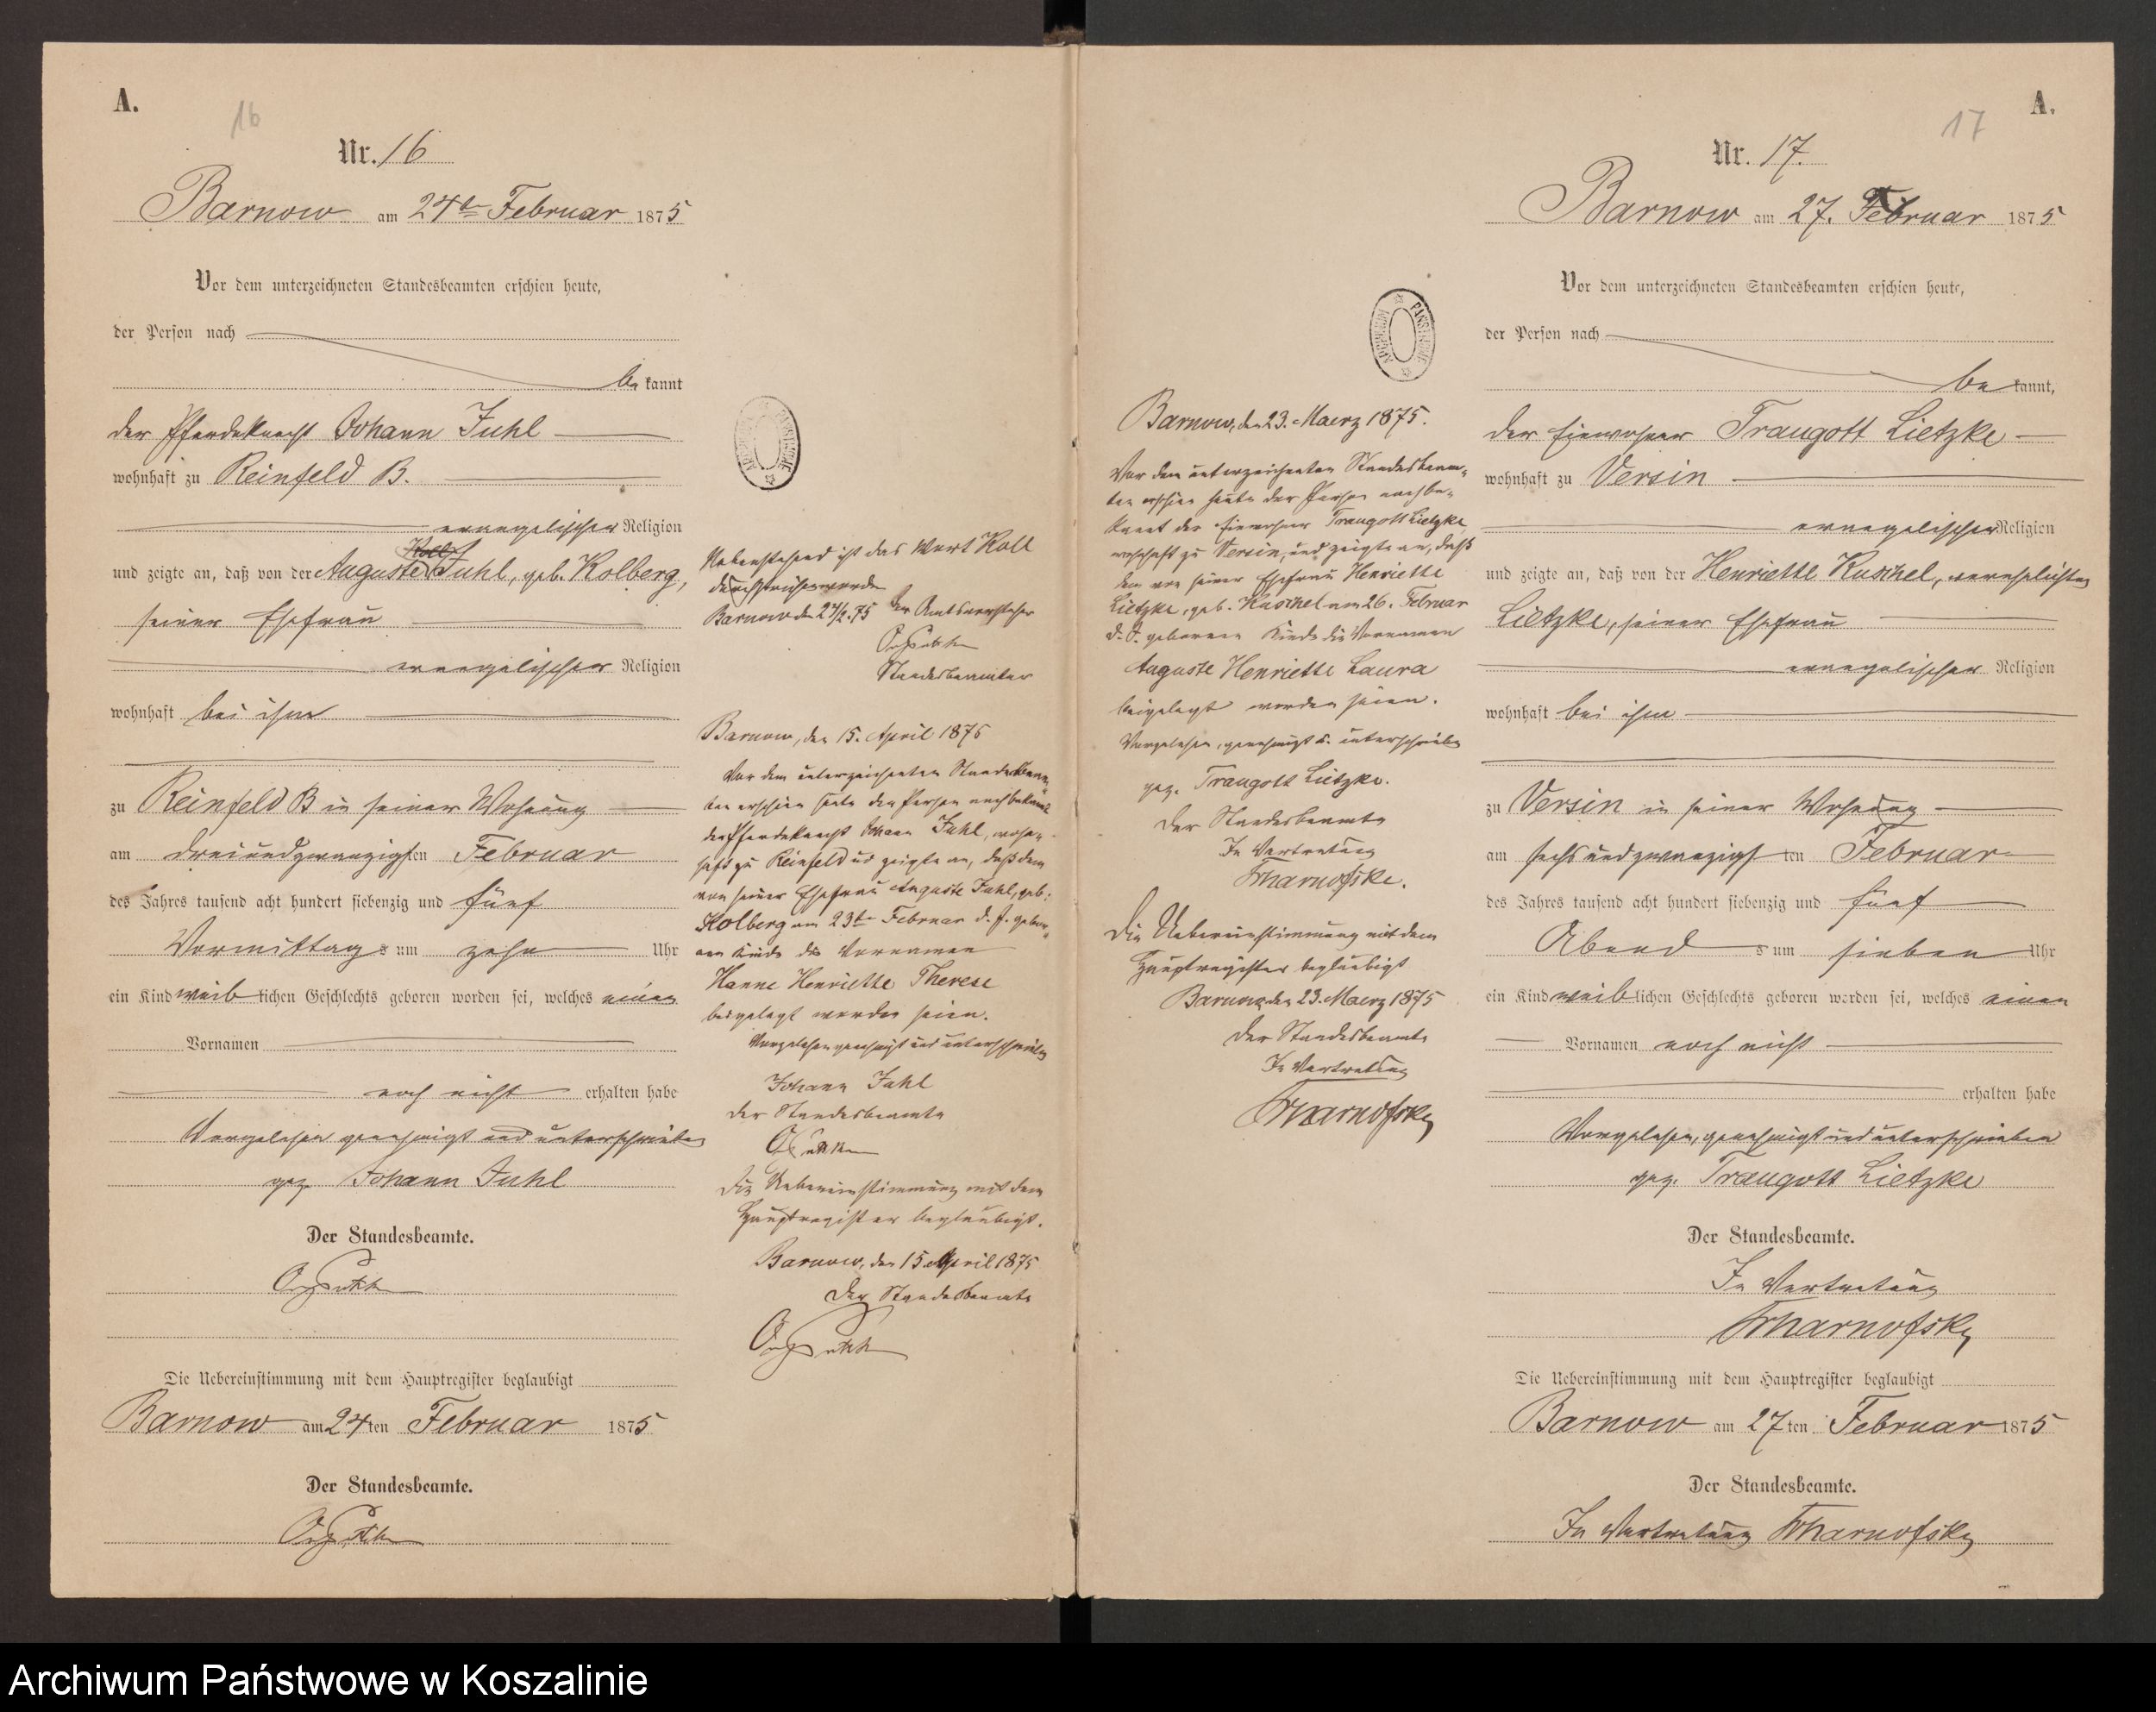 A.
16
Nr. 16
Barnow am 24ten Februar 1875
Vor dem unterzeichneten Standesbeamten erschien heute,
der Person nach
be kannt
der Pferdeknecht Johann Juhl
wohnhaft zu Reinfeld B.
evangelischer Religion
Koll
und zeigte an, daß von der Auguste Juhl, geb. Kolberg,
seiner Ehefrau
evangelischer Religion
wohnhaft bei ihm
zu Reinfeld B in seiner Wohnung
am dreiundzwanzigsten Februar
des Jahres tausend acht hundert siebenzig und fünf
Vormittags um zehn Uhr
ein Kind weiblichen Geschlechts geboren worden sei, welches einen
Vornamen
noch nicht erhalten habe
Vorgelesen genehmigt und unterschrieben
gez. Johann Juhl
Der Standesbeamte.
Die Uebereinstimmung mit dem Hauptregister beglaubigt
Barnow am 24ten Februar 1875
Der Standesbeamte.
Nebenstehend ist das Wort Koll
durchstrichen worden
Barnow den 24/2.75 Der Amtsvorsteher
Standesbeamter
Barnow, den 15. April 1875
Vor dem unterzeichneten Standesbeam-
ten erschien heute der Person nach bekannt
der Pferdeknecht Johann Juhl, wohn-
haft zu Reinfeld und zeigte an, daß dem
von seiner Ehefrau Auguste Juhl, geb:
Kolberg am 23ten Februar d. J. gebor-
nen Kinde die Vornamen
Hanne Henriette Therese
beigelegt worden seien.
Vorgelesen genehmigt und unterschrieben
Johann Juhl
Der Standesbeamte
Die Uebereinstimmung mit dem
Hauptregister beglaubigt.
Barnow, den 15. April 1875
Der Standesbeamte
ARCHIWUM PAŃSTWOWE
Barnow, den 23. Maerz 1875.
Vor dem unterzeichneten Standesbeam-
ten erschien heute der Person nach be-
kannt der Einwohner Traugott Lietzke
wohnhaft zu Versin, und zeigte an, daß
dem von seiner Ehefrau Henriette
Lietzke, geb. Kuschel am 26. Februar
d. J. geborenen Kinde die Vornamen
Auguste Henriette Laura
beigelegt worden seien.
Vorgelesen, genehmigt u. unterschrieben
gez. Traugott Lietzke.
Der Standesbeamte
In Vertretung
Die Uebereinstimmung mit dem
Hauptregister beglaubigt
Barnow den 23. Maerz 1875
Der Standesbeamte
In Vertretung
A.
17
Nr. 17.
Barnow am 27. Februar 1875
Vor dem unterzeichneten Standesbeamten erschien heute,
der Person nach
be kannt,
der Einwohner Traugott Lietzke
wohnhaft zu Versin
evangelischer Religion
und zeigte an, daß von der Henriette Kuschel, verehelichten
Lietzke, seiner Ehefrau
evangelischer Religion
wohnhaft bei ihm
zu Versin in seiner Wohnung
am sechsundzwanzigsten Februar
des Jahres tausend acht hundert siebenzig und fünf
Abends um sieben Uhr
ein Kind weiblichen Geschlechts geboren worden sei, welches einen
Vornamen noch nicht
erhalten habe
Vorgelesen, genehmigt und unterschrieben
gez. Traugott Lietzke
Der Standesbeamte.
In Vertretung
Die Uebereinstimmung mit dem Hauptregister beglaubigt
Barnow am 27ten Februar 1875
Der Standesbeamte.
In Vertretung
Archiwum Państwowe w Koszalinie